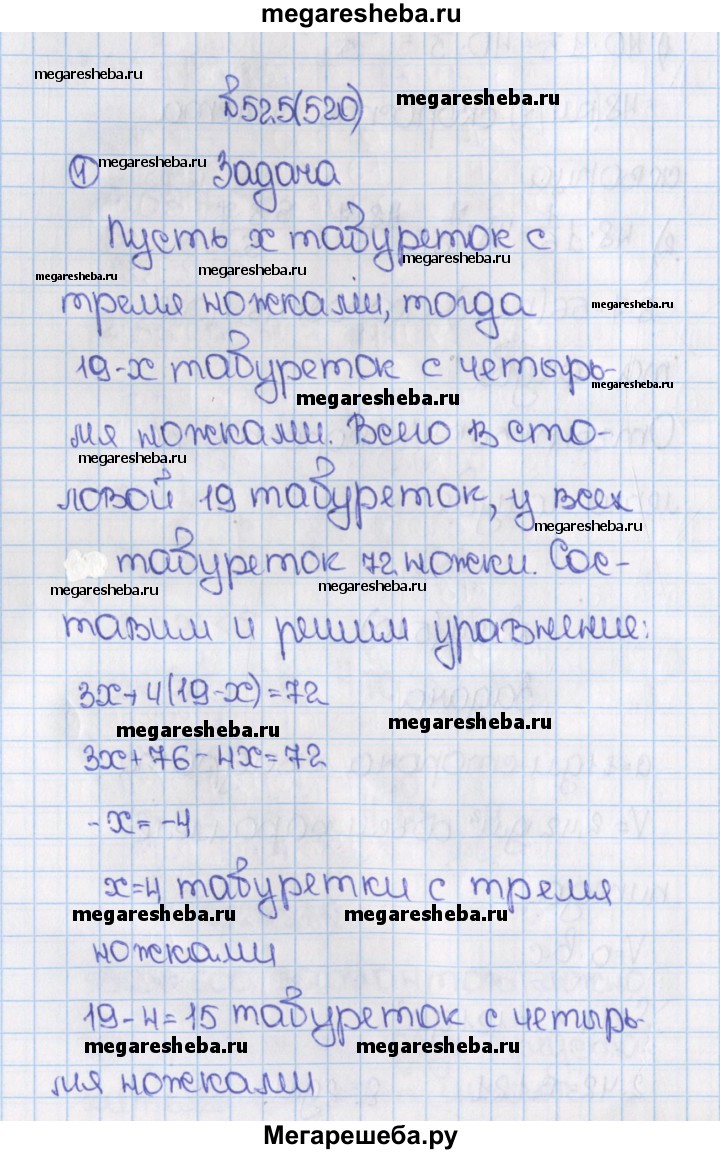 megaresheba.ru
megaresheba.ru
№525(520)
megaresheba.ru
1
megaresheba.ru
Задача
Пусть x табуреток с
megaresheba.ru
megaresheba.ru
megaresheba.ru
тремя ножками, тогда
megaresheba.ru
19-x табуреток с четырь-
megaresheba.ru
megaresheba.ru
мя ножками. Всего в сто-
megaresheba.ru
ловой 19 табуреток, у всех
megaresheba.ru
табуреток 72 ножки. Сос-
megaresheba.ru
megaresheba.ru
тавим и решим уравнение:
3x+4(19-x)=72
megaresheba.ru
megaresheba.ru
3x+76-4x=72
-x=-4
x=4 табуретки с тремя
megaresheba.ru
megaresheba.ru
ножками
19-4=15 табуреток с четырь-
megaresheba.ru
megaresheba.ru
мя ножками
Мегарешеба.ру